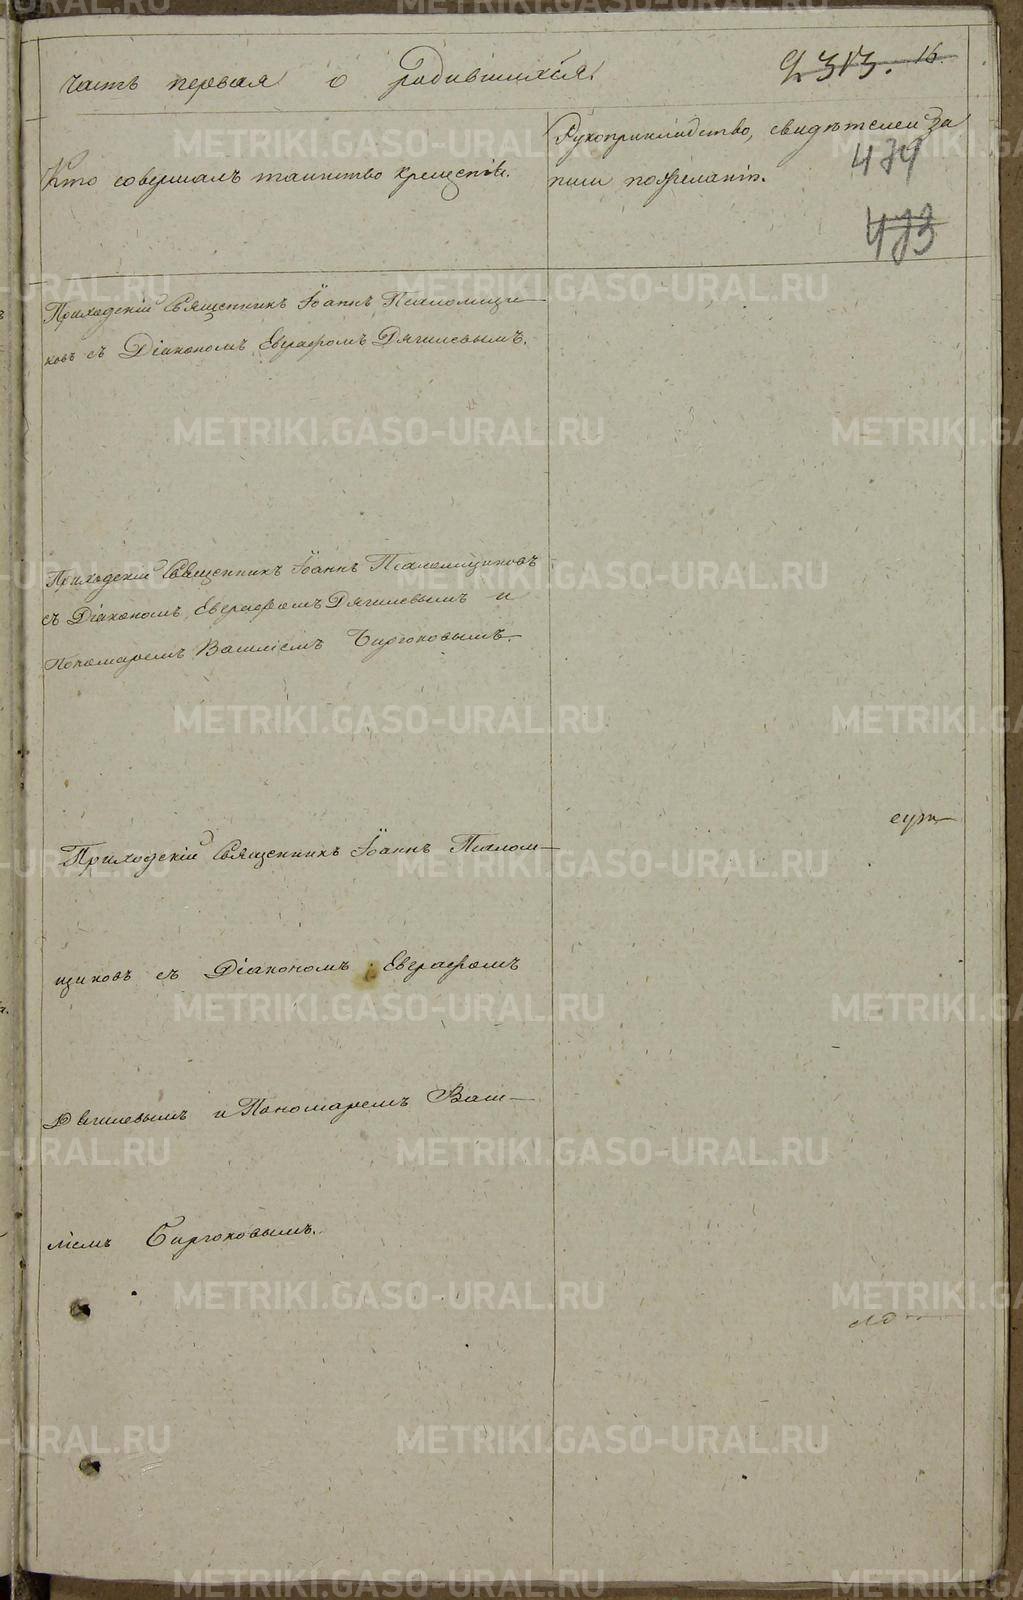 Часть первая о родившихся.
313. 16.
Кто совершалъ таинство крещенія.
Рукоприкладство, свидѣтелей за
писи по желанію.
479
473
Приходскій Священникъ Іоаннъ Псаломщи-
ковъ съ Діакономъ Евграфомъ Дягилевымъ.
Приходскій Священникъ Іоаннъ Псаломщиковъ
съ Діакономъ Евграфомъ Дягилевымъ и
Пономаремъ Василіемъ Бирюковымъ.
Приходскій Священникъ Іоаннъ Псалом-
щиковъ съ Діакономъ Евграфомъ
Дягилевымъ и Пономаремъ Васи-
ліемъ Бирюковымъ.
METRIKI.GASO-URAL.RU